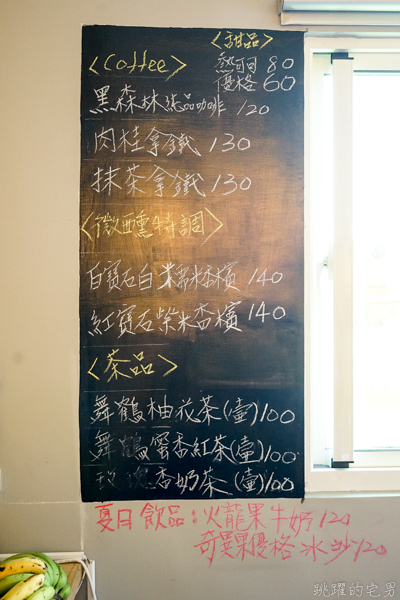 <甜品>
<Coffee> 熱可可 80
優格 60
黑森林冰品咖啡 120
肉桂拿鐵 130
抹茶拿鐵 130
<微醺特調>
白寶石白米糯米香檳 140
紅寶石紫米香檳 140
<茶品>
舞鶴柚花茶(壺)100
舞鶴蜜香紅茶(壺)100
香奶茶(壺)100
夏日飲品:火龍果牛奶120
奇異果優格冰沙120
跳躍的宅男